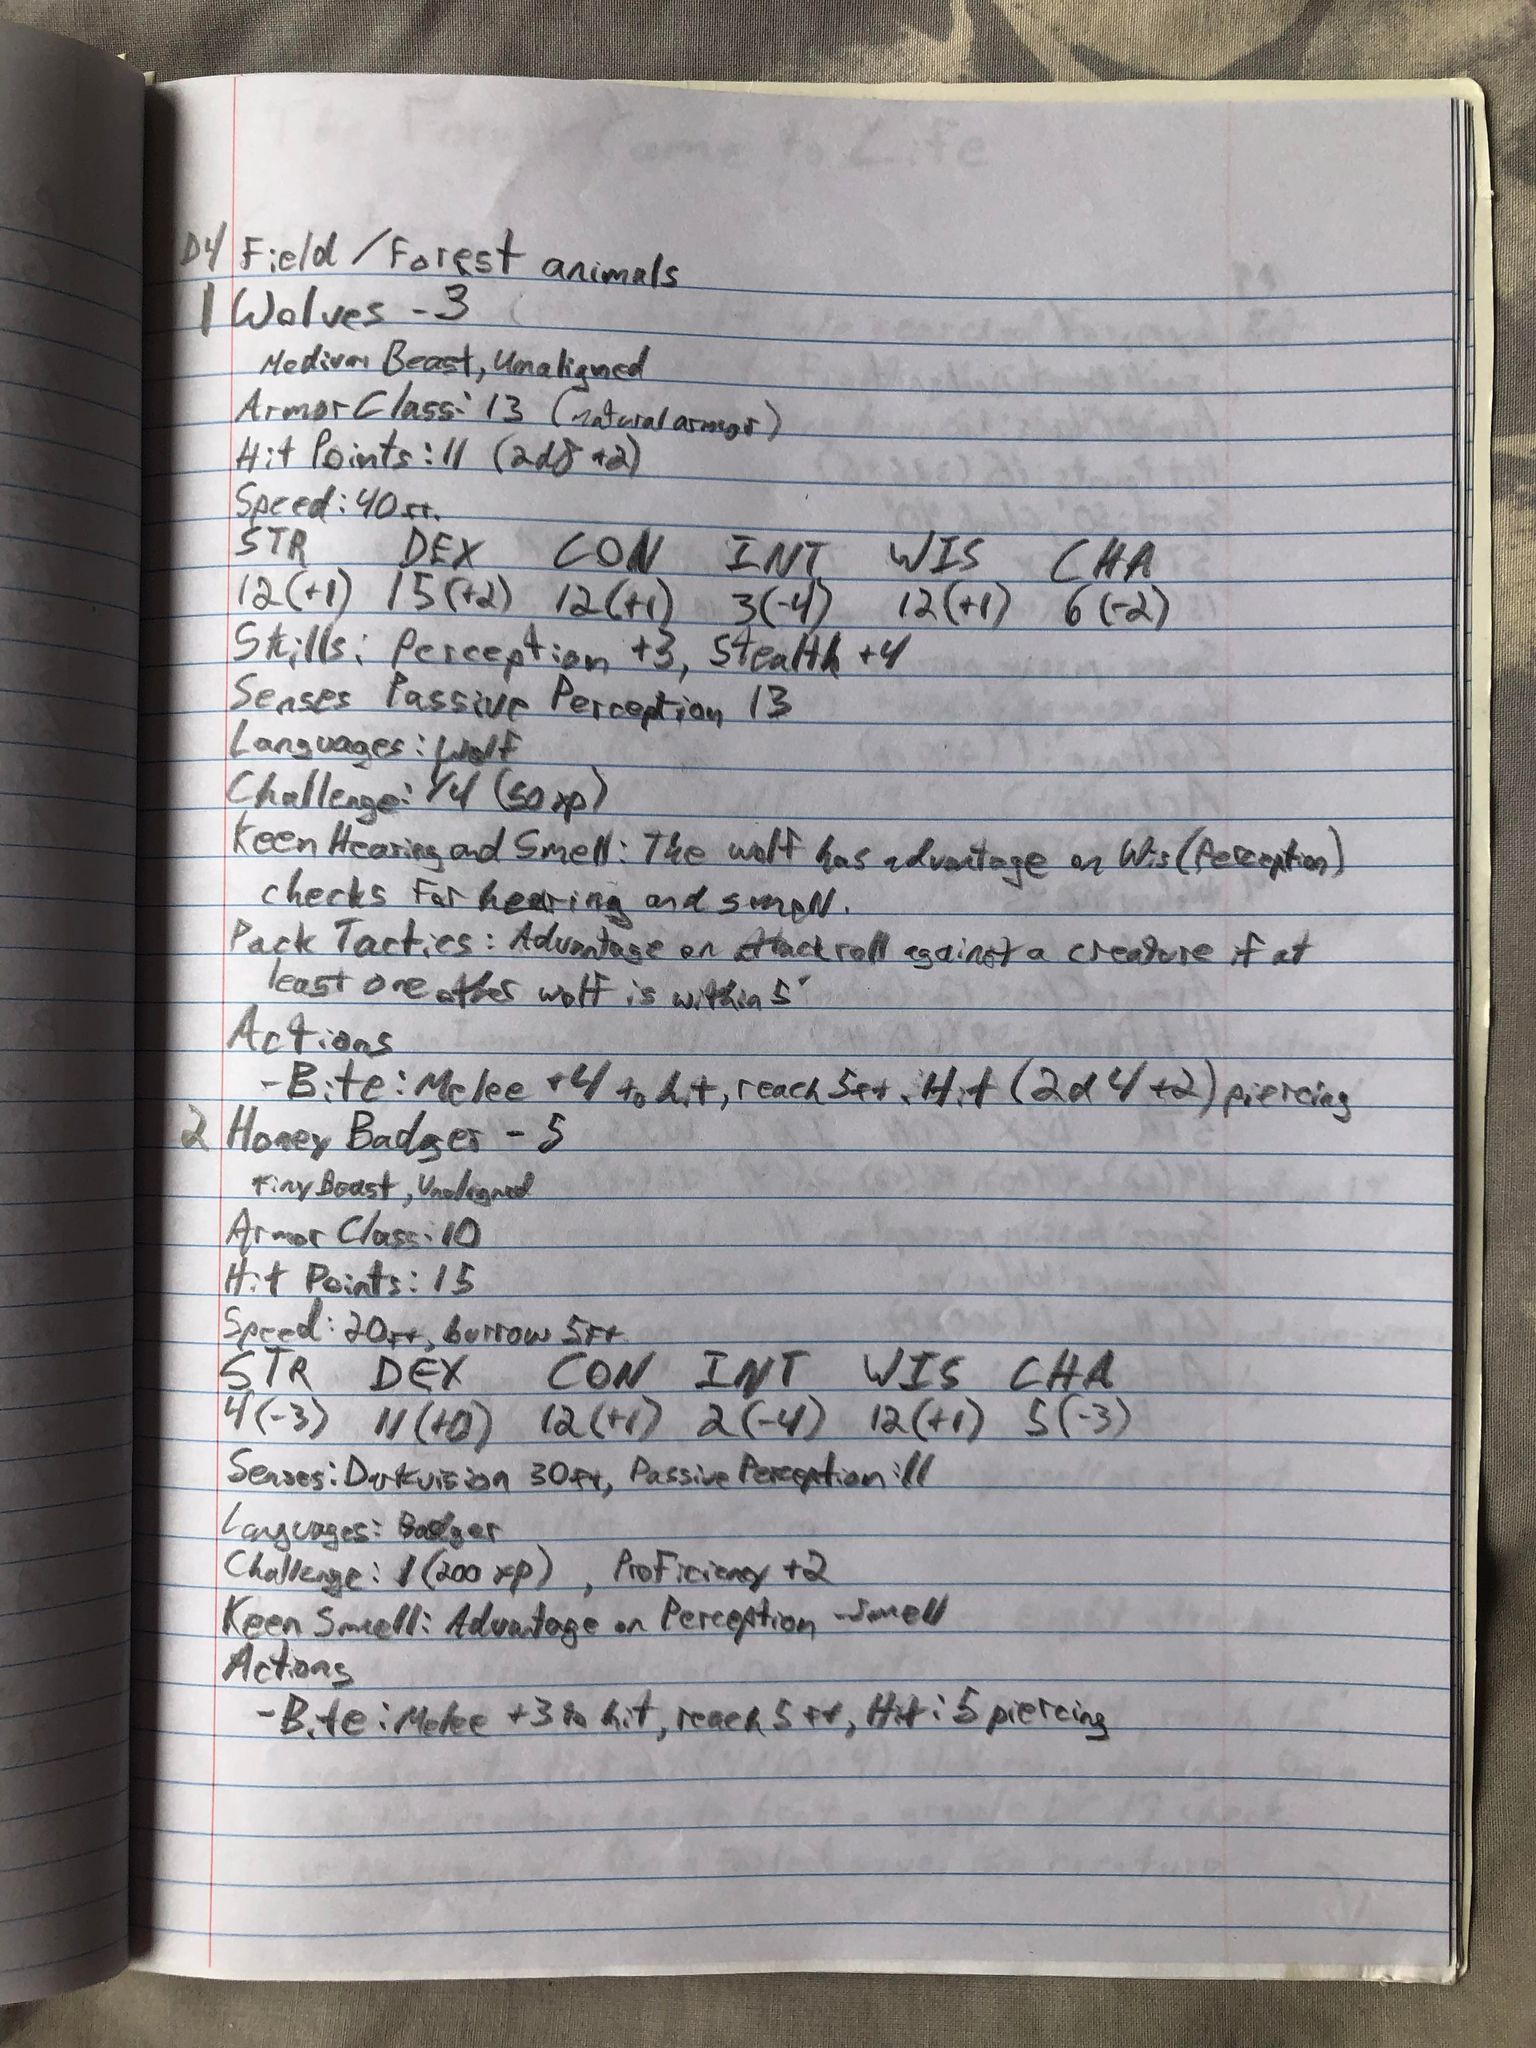 The Forest Came to Life
D4 Field/Forest animals
1 Wolves - 3
Medium Beast, Unaligned
Armor Class: 13 (natural armor)
Hit Points: 11 (2d8 +2)
Speed: 40 ft.
STR DEX CON INT WIS CHA
12(+1) 15(+2) 12(+1) 3(-4) 12(+1) 6(-2)
Skills: Perception +3, Stealth +4
Senses Passive Perception 13
Languages: Wolf
Challenge: 1/4 (50 xp)
Keen Hearing and Smell: The wolf has advantage on Wis (Perception)
checks for hearing and smell.
Pack Tactics: Advantage on attack roll against a creature if at
least one other wolf is within 5'
Actions
- Bite: Melee +4 to hit, reach 5ft. Hit (2d4+2) piercing
2 Honey Badger - 5
Tiny Beast, Unaligned
Armor Class: 10
Hit Points: 15
Speed: 20ft, burrow 5ft
STR DEX CON INT WIS CHA
4(-3) 11(+0) 12(+1) 2(-4) 12(+1) 5(-3)
Senses: Darkvision 30ft, Passive Perception: 11
Languages: Badger
Challenge: 1 (200 xp), Proficiency +2
Keen Smell: Advantage on Perception - smell
Actions
- Bite: Melee +3 to hit, reach 5 ft, Hit: 5 piercing